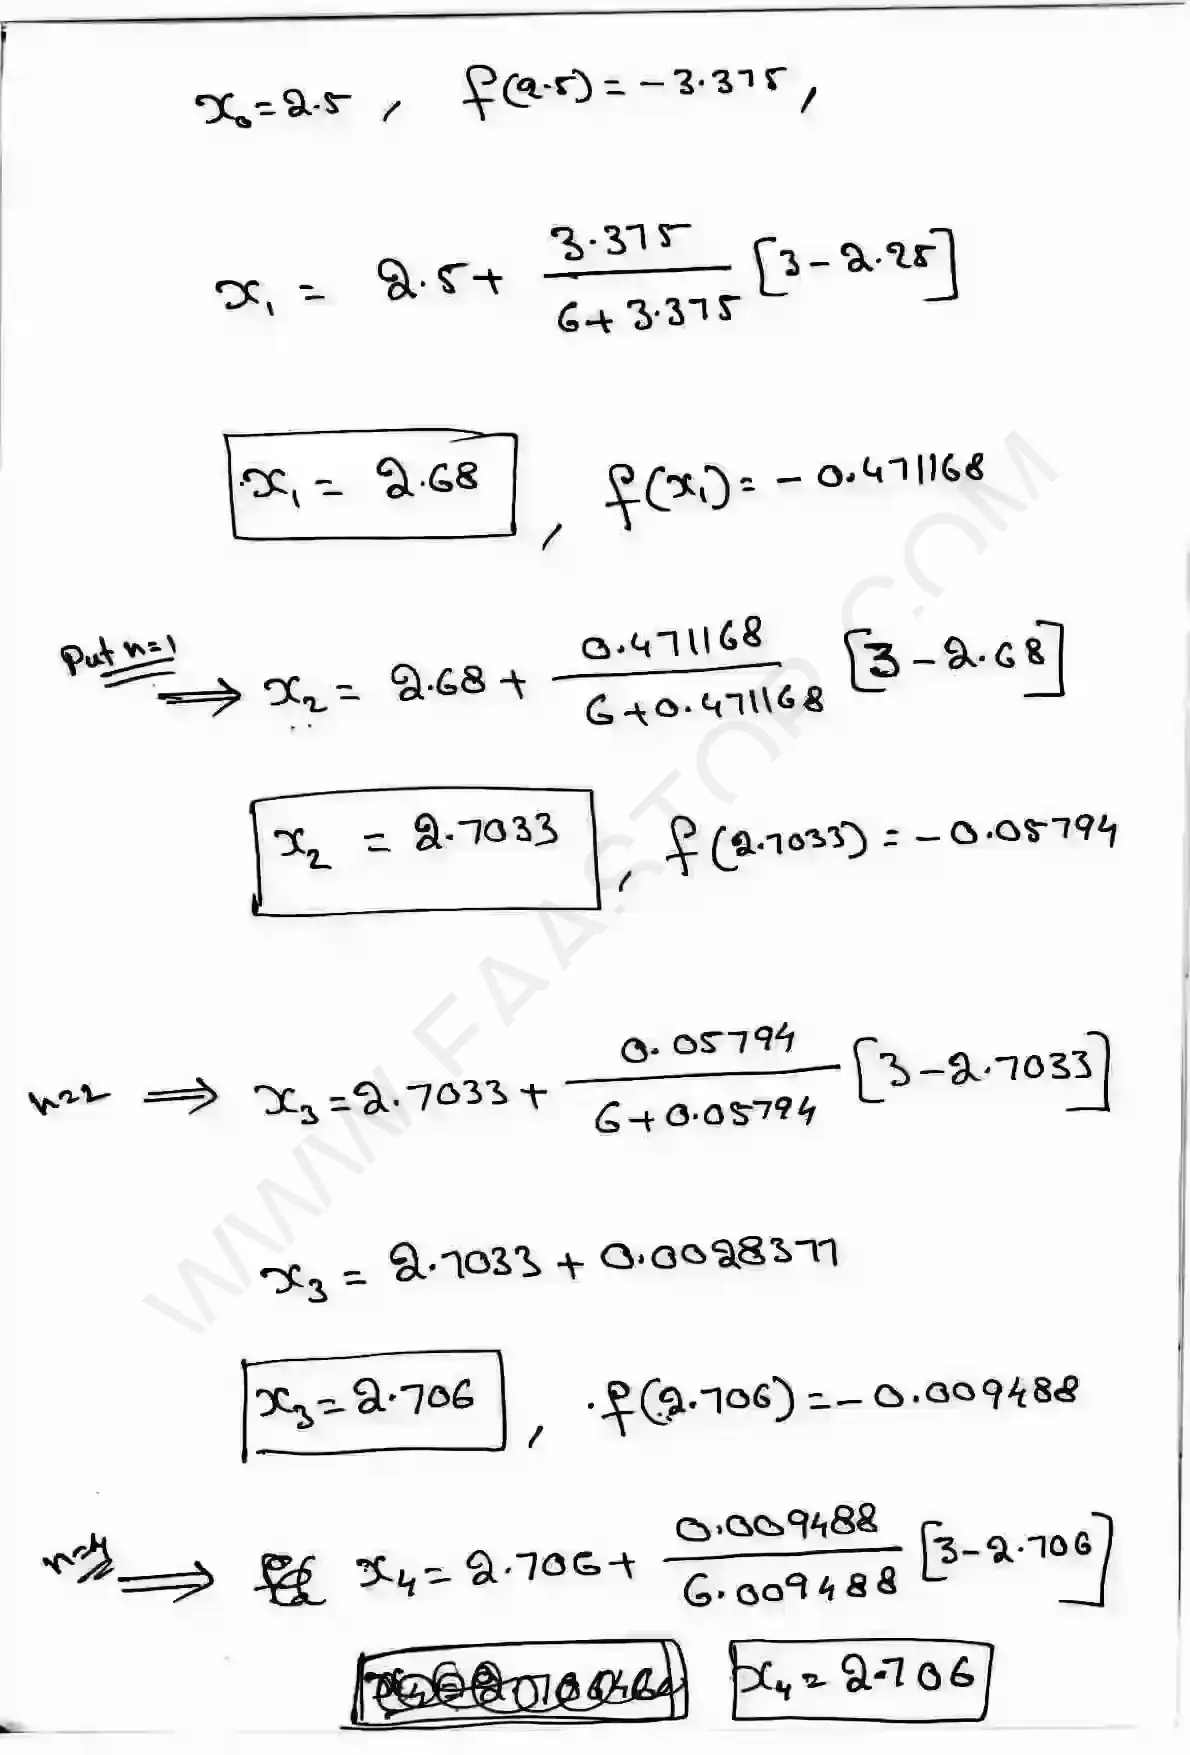 x₀ = 2.5 , f(2.5) = -3.375 ,
x₁ = 2.5 + 3.375 / (6 + 3.375) [3 - 2.25]
x₁ = 2.68 , f(x₁) = -0.471168
Put n=1 ⟹ x₂ = 2.68 + 0.471168 / (6 + 0.471168) [3 - 2.68]
x₂ = 2.7033 , f(2.7033) = -0.05794
n=2 ⟹ x₃ = 2.7033 + 0.05794 / (6 + 0.05794) [3 - 2.7033]
x₃ = 2.7033 + 0.0028377
x₃ = 2.706 , f(2.706) = -0.009488
n=4 ⟹ x₄ = 2.706 + 0.009488 / 6.009488 [3 - 2.706]
x₄ = 2.706
WWW.FAASTOP.COM